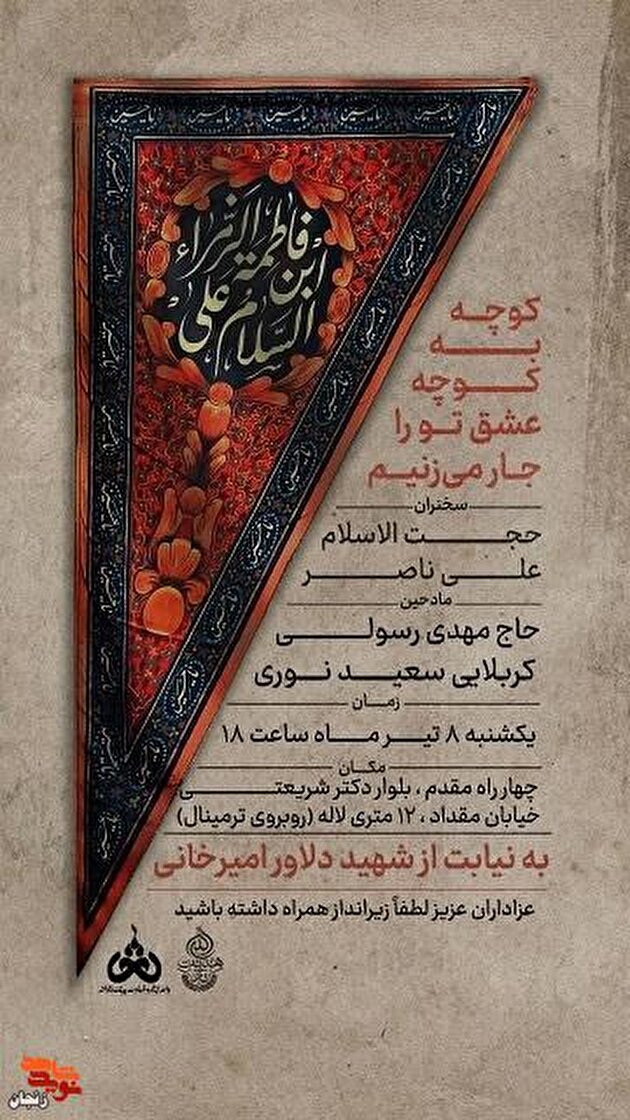 یا حسین یا حسین یا حسین یا حسین یا حسین
ابن فاطمة الزهراء
علی السلام
کوچه
بـه
کوچه
عشق تو را
جار می‌زنیم
سخنران
حجت الاسلام
علی ناصر
مادحین
حاج مهدی رسولی
کربلایی سعید نوری
زمان
یکشنبه ۸ تیر ماه ساعت ۱۸
مکان
چهارراه مقدم ، بلوار دکتر شریعتی
خیابان مقداد ، ۱۲ متری لاله (روبروی ترمینال)
به نیابت از شهید دلاور امیرخانی
عزاداران عزیز لطفاً زیرانداز همراه داشته باشید
نوید شاهد
زنجان